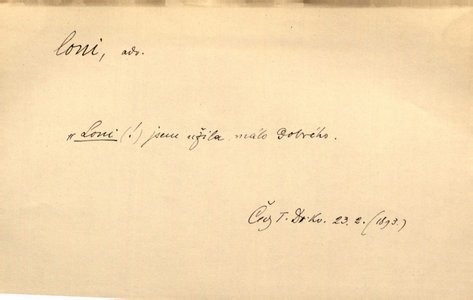 loni, adv.
„Loni (!) jsem užila málo dobrého.
Čes. T. 23. 2. (1893.)